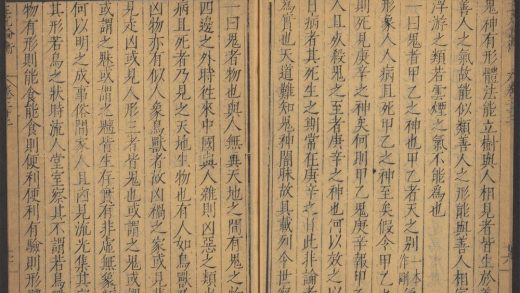 鬼神有形體法能立樹與人相見者皆生於善
人善人之氣故能似類善人之形能與善人相害
浮游之類若雲煙之氣不能為也
一曰鬼者甲乙之神也甲乙者天之別 一本作剛
形象人人病且死甲乙之神至矣假令甲乙
則死見庚辛之神矣何則甲乙鬼庚辛報甲乙
且死殺鬼之至者庚辛之神也何以放之以
日病者其死生之期常在庚辛之日此非論者
為實也天道難知鬼神闇昧故具載列令世察
一曰鬼者物也與人無異天地之間有鬼之物
四邊之外時往來中國與人雜則凶惡之類
病且死者乃見之天地生物也有人如鳥獸
凶物亦有似人象鳥獸者故凶禍之家或見
見走凶或見人形三者皆鬼也或謂之鬼或
或謂之魅或謂之魑皆生存實有非虛無象
何以明之成事俗間家人且凶見流光集其
其形若鳥之狀時流人堂室察其不謂若鳥
物有形則能食能食則便利便利有驗則形體